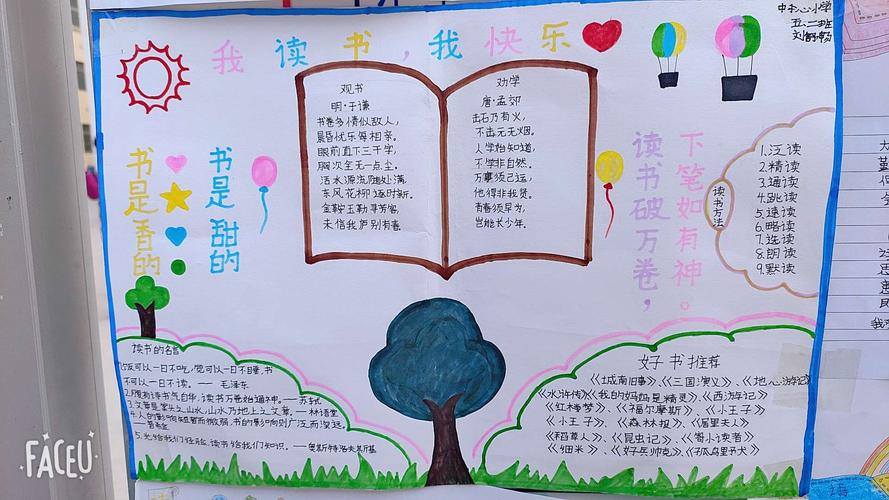 中心小学
五.二班
刘舒畅
我读书，我快乐
观书
明·于谦
书卷多情似故人，
晨昏忧乐每相亲。
眼前直下三千字，
胸次全无一点尘。
活水源流随处满，
东风花柳逐时新。
金鞍玉勒寻芳客，
未信我庐别有春
劝学
唐·孟郊
击石乃有火，
不击元无烟。
人学始知道，
不学非自然。
万事须己运，
他得非我贤。
青春须早为，
岂能长少年。
书是香的
书是甜的
读书破万卷，
下笔如有神。
读书方法
1.泛读
2.精读
3.通读
4.跳读
5.速读
6.略读
7.选读
8.朗读
9.默读
读书的名言
1.饭可以一日不吃，觉可以一日不睡，书
不可以一日不读。— 毛泽东
2.腹有诗书气自华，读书万卷始通神。—苏轼
3.文章是案头之山水，山水乃地上之文章，—林语堂
4.人的影响短暂而微弱，书的影响则广泛而深远。
—普希金
5.光给我们经验，读书给我们知识。—奥斯特洛夫斯基
好书推荐
《城南旧事》、《三国演义》、《地心游记》
《水浒传》《我的妈妈是精灵》、《西游记》
《红楼梦》、《福尔摩斯》、《小王子》
《小王子》、《森林报》、《屋里夫人》
《稻草人》、《昆虫记》、《窗小读者》
《细米》、《好兵帅克》、《孑孓乌里节大》
FACEU